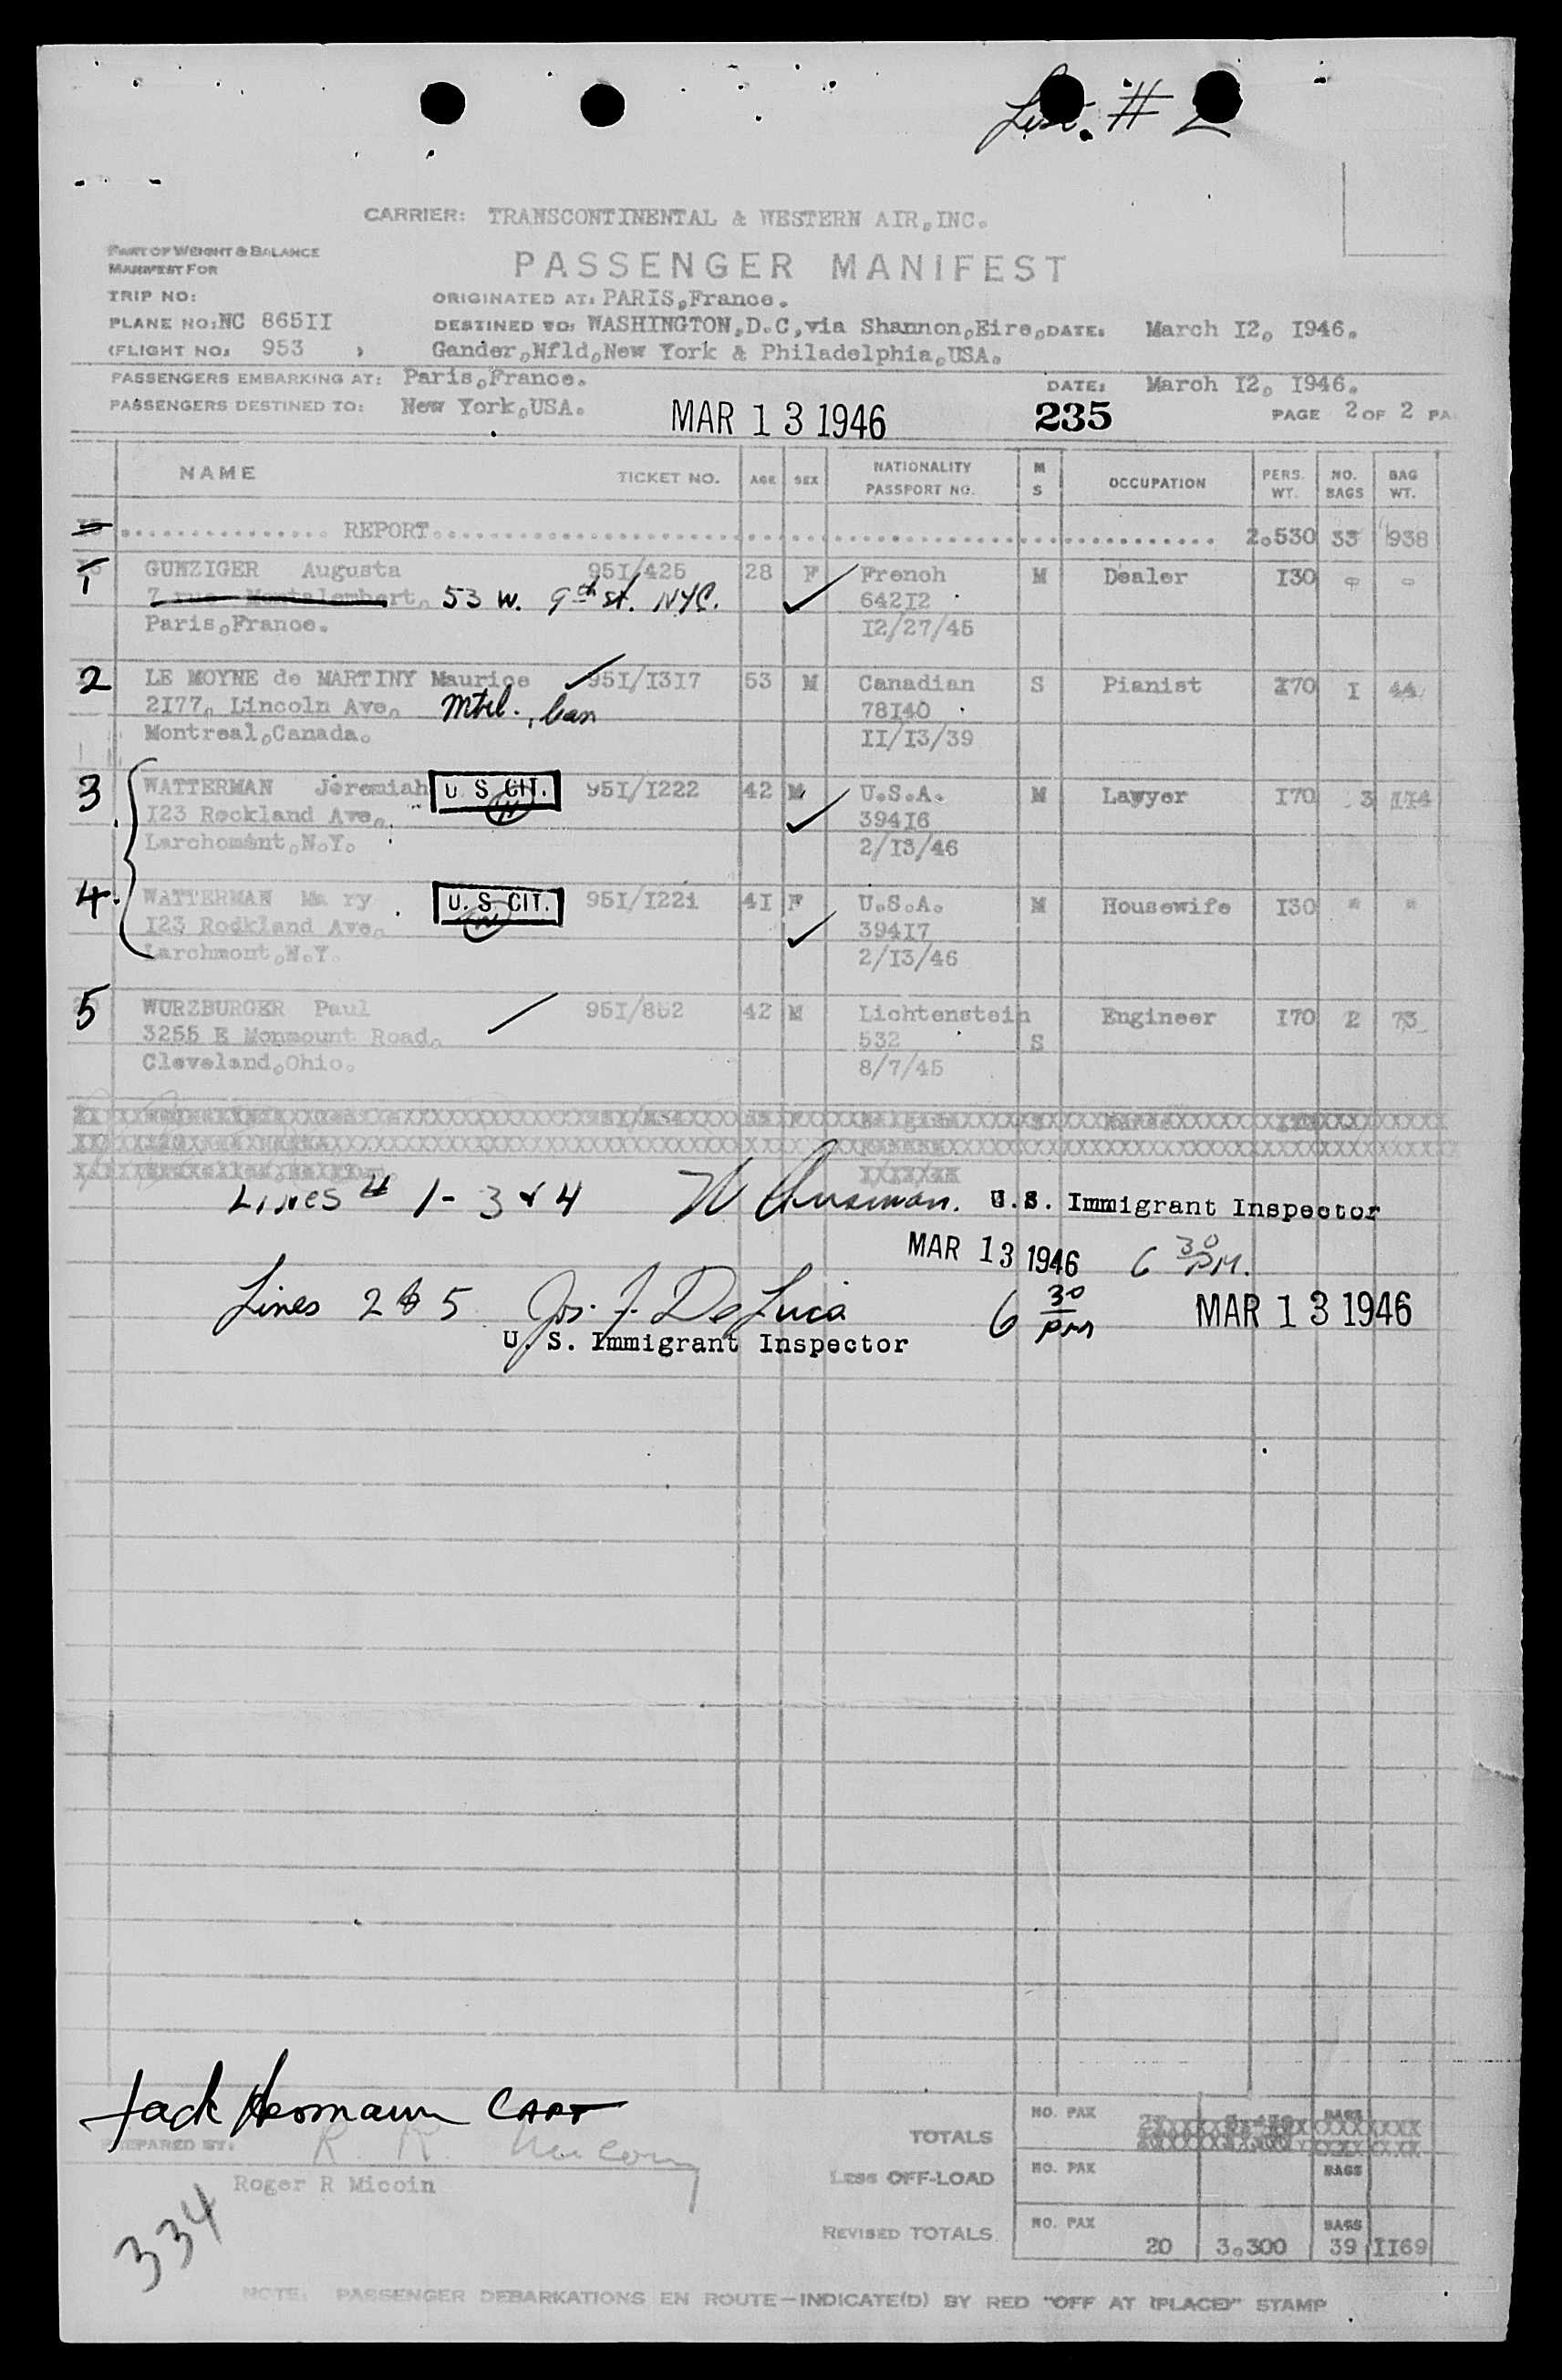 List. # 2
CARRIER: TRANSCONTINENTAL & WESTERN AIR,INC.
PART OF WEIGHT & BALANCE
MANIFEST FOR
PASSENGER MANIFEST
TRIP NO: ORIGINATED AT: PARIS,France.
PLANE NO: NC 865II DESTINED TO: WASHINGTON,D.C,via Shannon,Eire, DATE: March I2, I946.
(FLIGHT NO: 953 ) Gander,Nfld,New York & Philadelphia,USA.
PASSENGERS EMBARKING AT: Paris,France. DATE: March I2, I946.
PASSENGERS DESTINED TO: New York,USA. MAR 13 1946 235 PAGE 2 OF 2 PA
NAME TICKET NO. AGE SEX NATIONALITY PASSPORT NO. M S OCCUPATION PERS. WT. NO. BAGS BAG WT.
15 REPORT 2,530 33 938
1 GUNZIGER Augusta 95I/425 28 F French M Dealer I30 - -
7 rue Montalembert, 53 W. 9th st. NYC. 642I2
Paris,France. I2/27/45
2 LE MOYNE de MARTINY Maurice 95I/I3I7 53 M Canadian S Pianist I70 I 44
2I77, Lincoln Ave, Mtrl., Can 78I40
Montreal,Canada. II/I3/39
3 WATTERMAN Jeremiah U S CIT. 95I/I222 42 M U.S.A. M Lawyer I70 3 II4
I23 Rockland Ave, 394I6
Larchomant,N.Y. 2/I3/46
4 WATTERMAN Ma ry U. S CIT. 95I/I22I 4I F U.S.A. M Housewife I30 " "
I23 Rodkland Ave, 394I7
Larchmont,N.Y. 2/I3/46
5 WURZBURGER Paul 95I/852 42 M Lichtenstein Engineer I70 2 73
3255 E Monmount Road, 532 S
Cleveland,Ohio. 8/7/45
Lines # 1 - 3 & 4 U.S. Immigrant Inspector
MAR 13 1946 6 30 PM.
Lines 2 & 5 Jos. J. De Luca 6 30 pm MAR 13 1946
U. S. Immigrant Inspector
Jack Hermann CAPT
PREPARED BY:
Roger R Micoin
334
TOTALS NO. PAX BAGS
Less OFF-LOAD NO. PAX BAGS
REVISED TOTALS NO. PAX 20 3,300 BAGS 39 II69
NOTE: PASSENGER DEBARKATIONS EN ROUTE—INDICATE(D) BY RED "OFF AT (PLACE)" STAMP